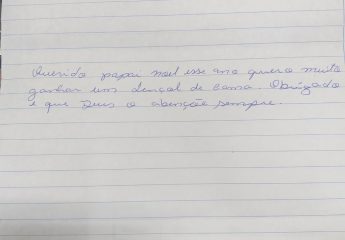 Querido papai noel esse ano quero muito
ganhar um lençol de cama. Obrigado
e que Deus o abençõe sempre.